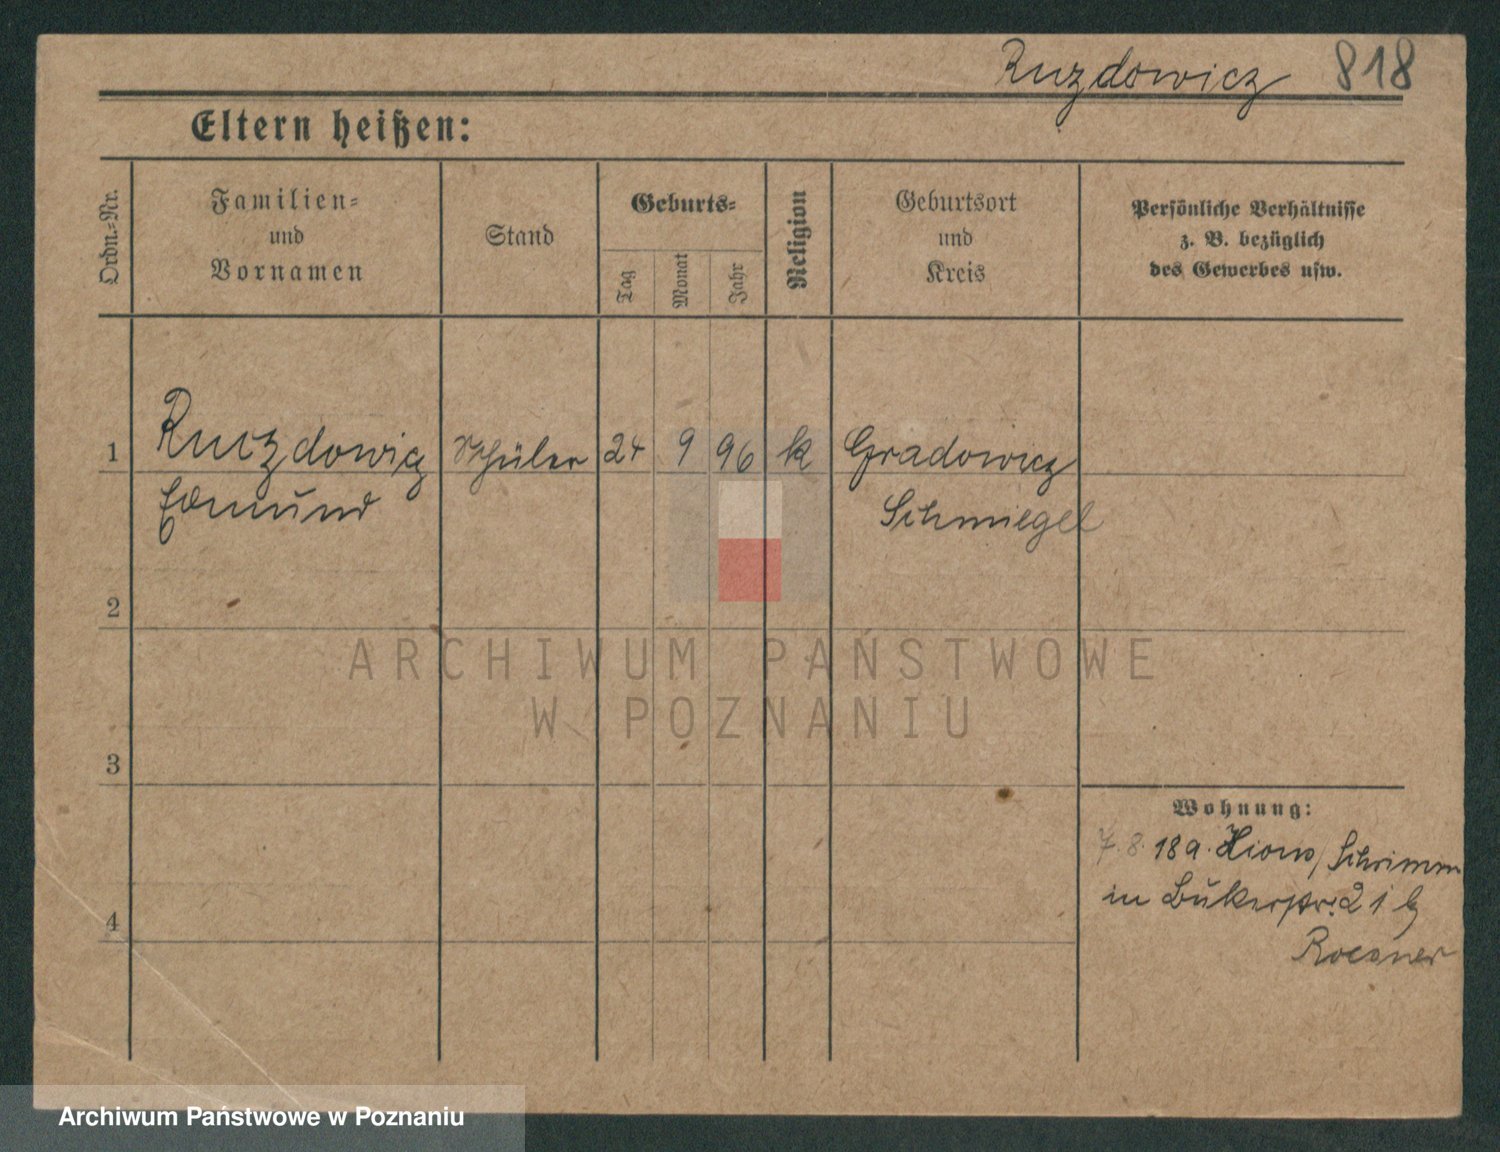 Ruzdowicz 818
Eltern heißen:
Ordn.-Nr.
Familien-
und
Vornamen
Stand
Geburts-
Tag
Monat
Jahr
Religion
Geburtsort
und
Kreis
Persönliche Verhältnisse
z. B. bezüglich
des Gewerbes usw.
1 Ruczdowicz Schüler 24 9 96 k Gradowicz
Edmund Schmiegel
2
ARCHIWUM PAŃSTWOWE
W POZNANIU
3
Wohnung:
7. 8. 18 a. Xions / Schrimm
in Bukerstr. 21 b
Roesner
4
Archiwum Państwowe w Poznaniu